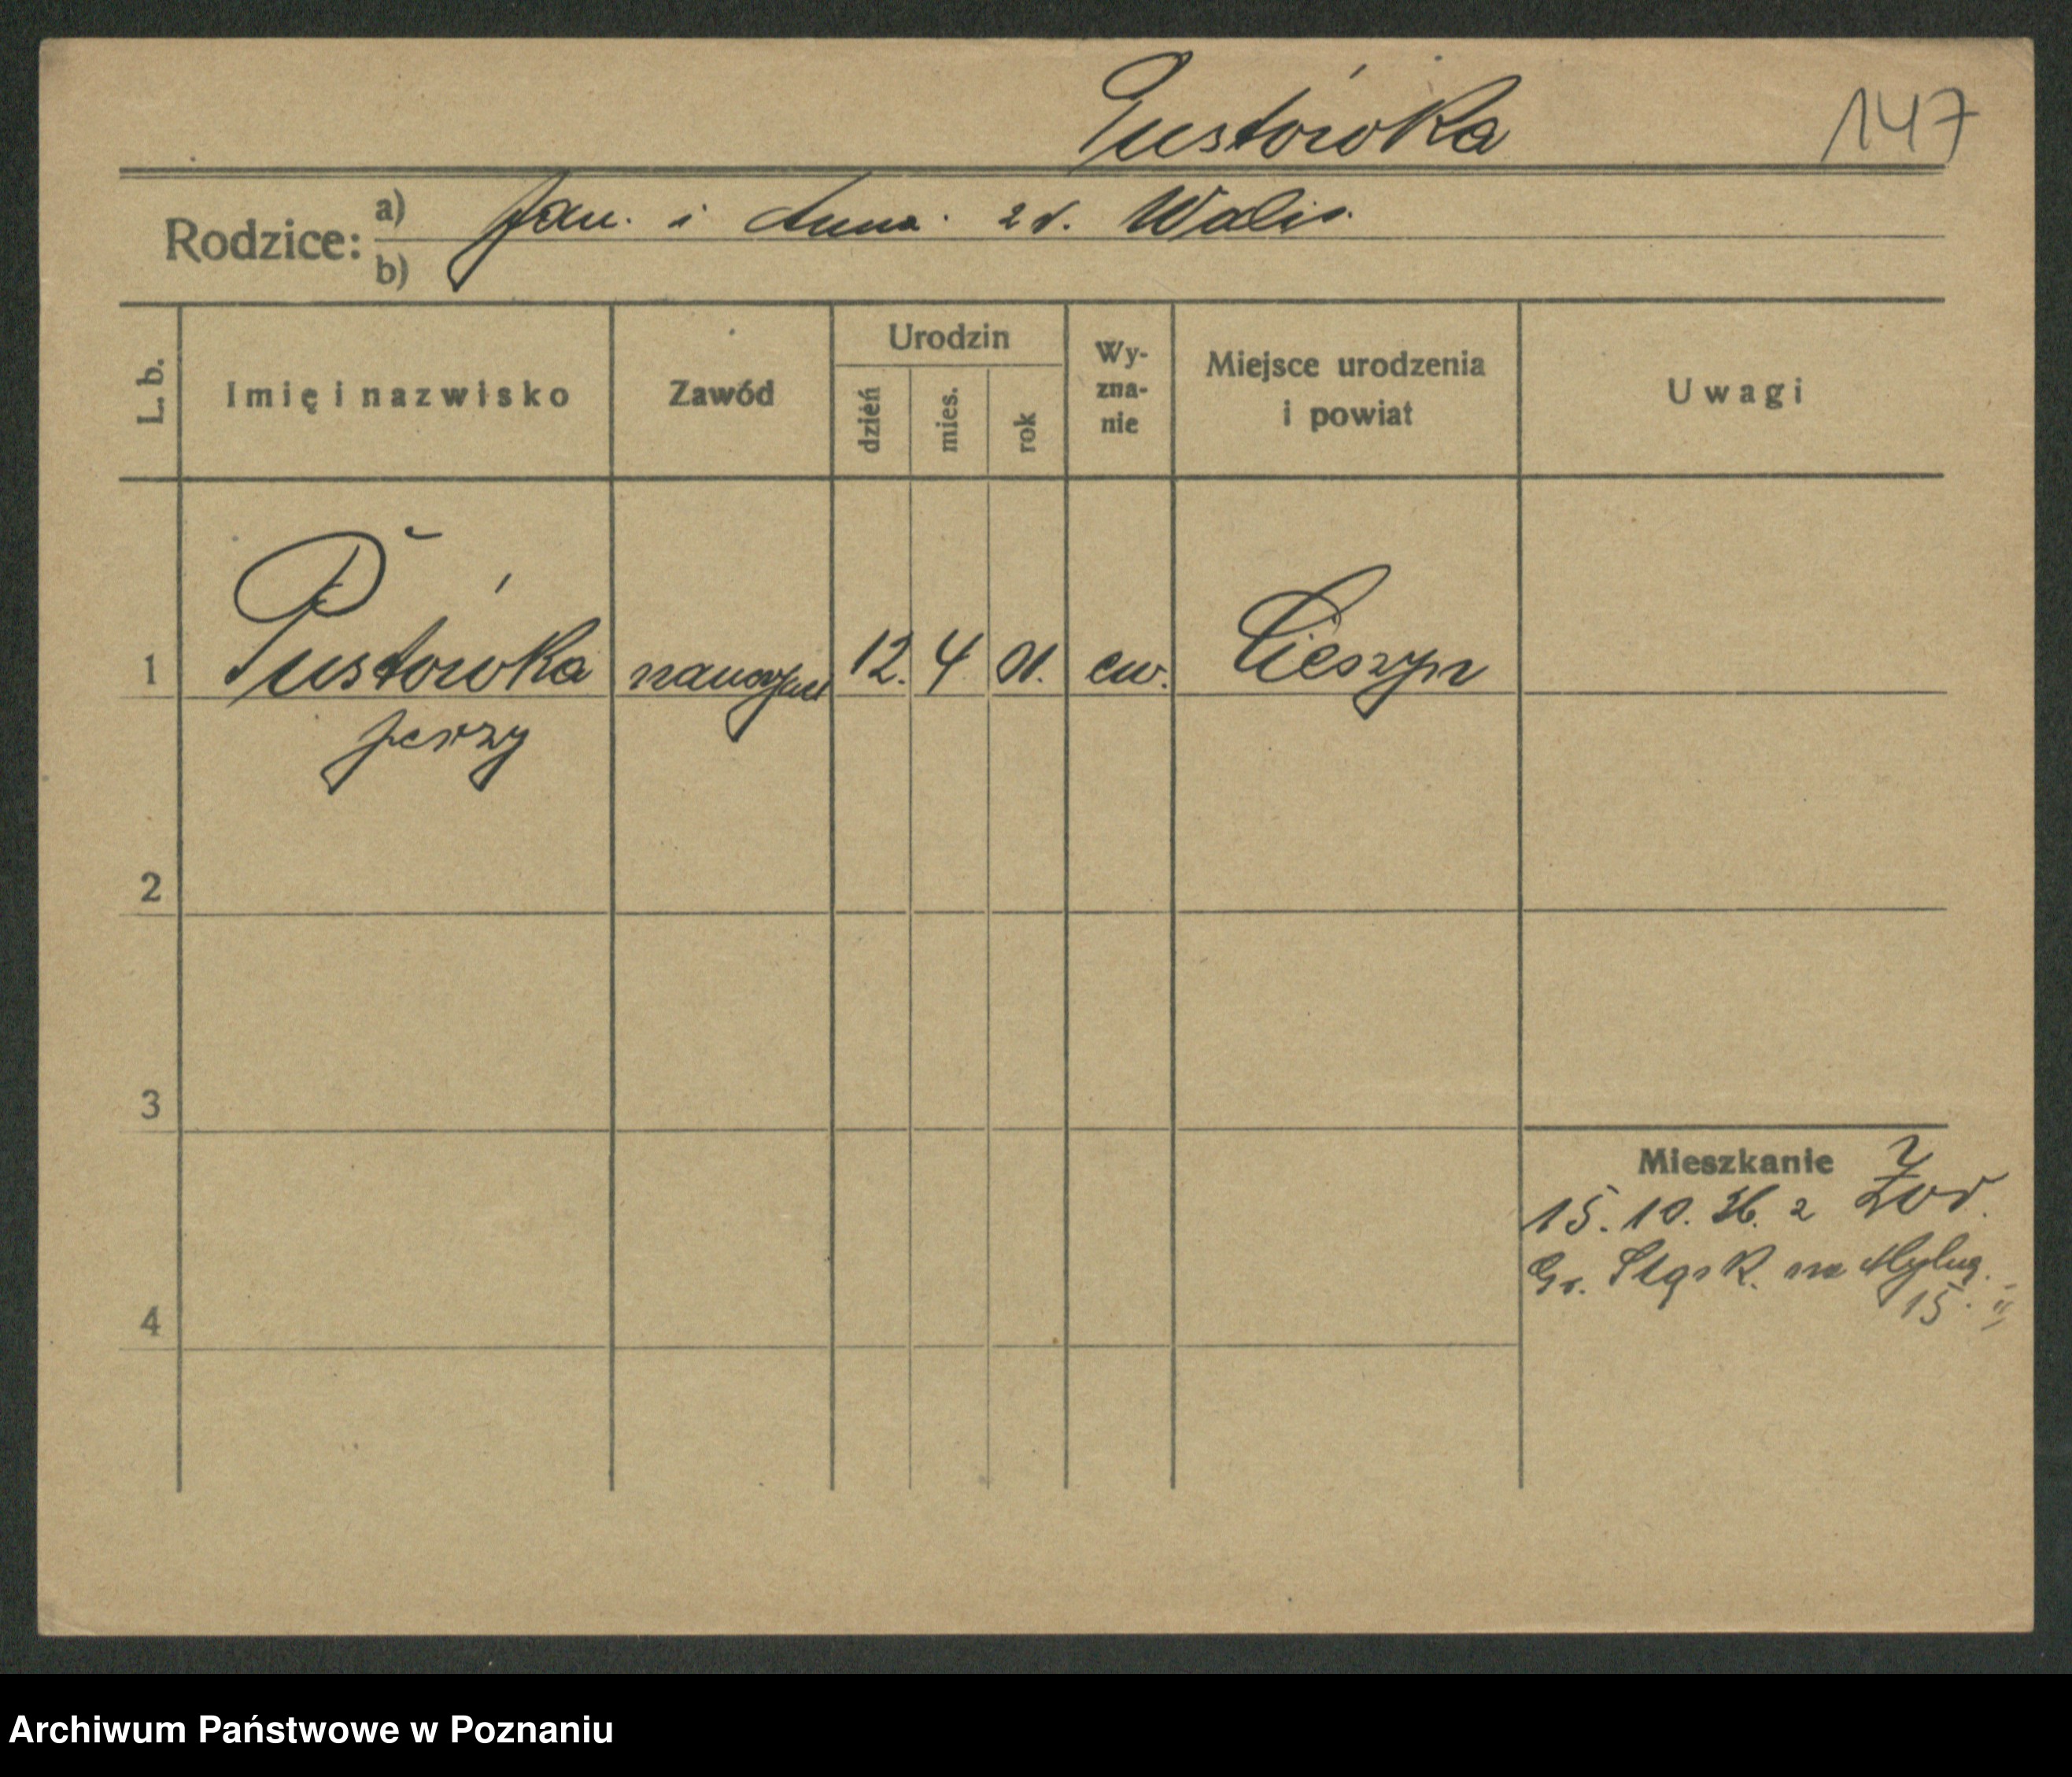 Pustówka 147
Rodzice: a) Jan. i Anna. z d. Walis.
b)
L. b. Imię i nazwisko Zawód Urodzin dzień mies. rok Wy-zna-nie Miejsce urodzenia i powiat Uwagi
1 Pustówka nauczyciel 12. 4. 01. ew. Cieszyn
Jerzy
2
3
Mieszkanie
15. 10. 36. z
Gr. Śląsk. na
15.
4
Archiwum Państwowe w Poznaniu